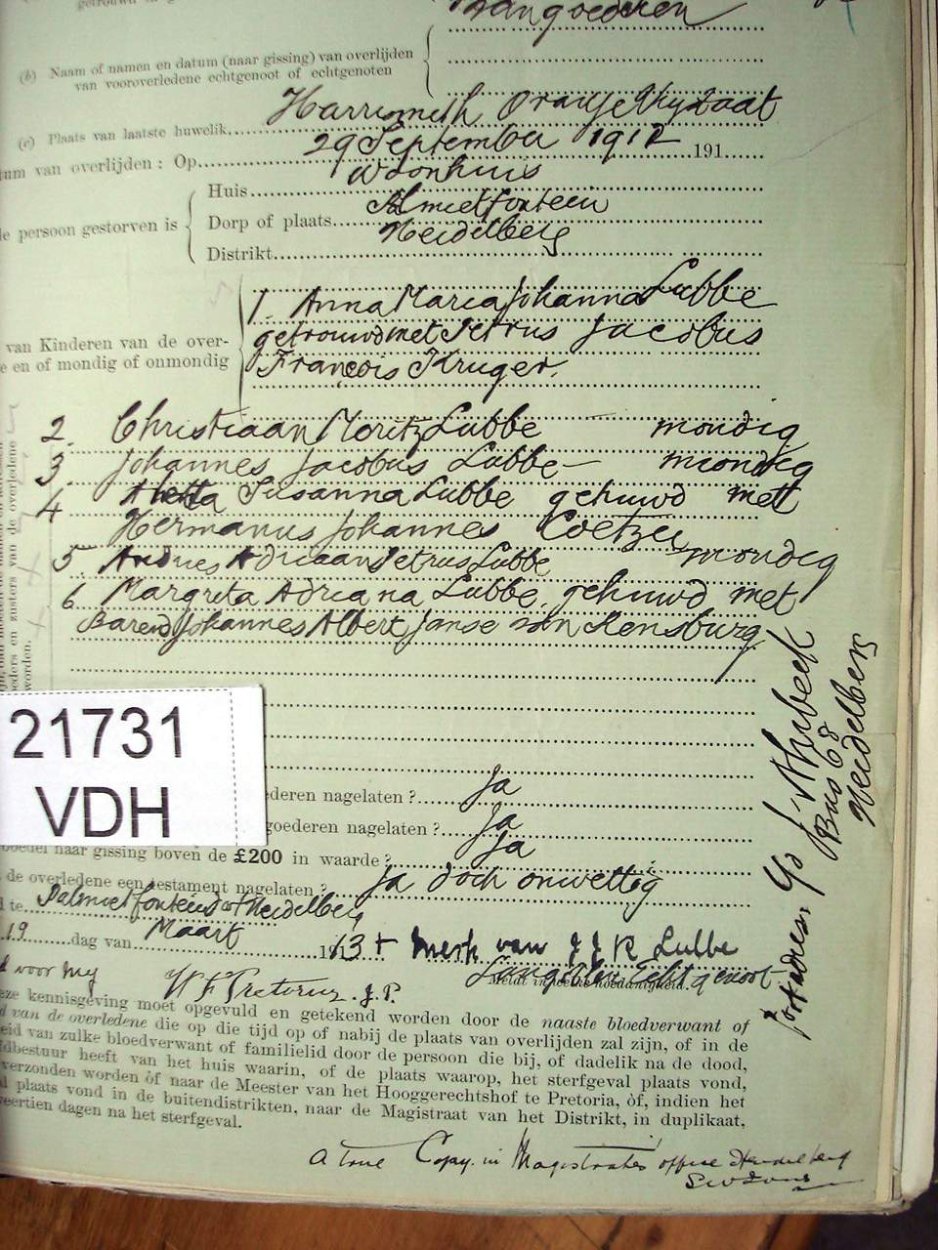 aangoederen
(b) Naam of namen en datum (naar gissing) van overlijden
van vooroverledene echtgenoot of echtgenoten
(c) Plaats van laatste huwelik Harrismith Oranje Vrystaat
um van overlijden: Op 29 September 1912 191
Huis Woonhuis
e persoon gestorven is
Dorp of plaats
Distrikt Heidelberg
1. Anna Maria Johanna Lubbe
getrouwd met Petrus Jacobus
van Kinderen van de over-
e en of mondig of onmondig
François Kruger.
2. Christiaan Moritz Lubbe mondig
3. Johannes Jacobus Lubbe – mondig
4 Aletta Susanna Lubbe gehuwd met
Hermanus Johannes Coetzee
5. Andries Adriaan Petrus Lubbe mondig
6 Margreta Adriana Lubbe. gehuwd met
Barend Johannes Albert Janse van Rensburg
21731
VDH
ederen nagelaten? Ja
goederen nagelaten? Ja
boedel naar gissing boven de £200 in waarde? Ja
de overledene een testament nagelaten? Ja doch onwettig
d te Palmietfontein Heidelberg
19 dag van Maart 1913 + Merk van J J R Lubbe
Langstlev. Echtgenoot
d voor my W F Pretorius. J.P.
eze kennisgeving moet opgevuld en getekend worden door de naaste bloedverwant of
d van de overledene die op die tijd op of nabij de plaats van overlijden zal zijn, of in de
eid van zulke bloedverwant of familielid door de persoon die bij, of dadelik na de dood,
dbestuur heeft van het huis waarin, of de plaats waarop, het sterfgeval plaats vond,
verzonden worden òf naar de Meester van het Hooggerechtshof te Pretoria, òf, indien het
l plaats vond in de buitendistrikten, naar de Magistraat van het Distrikt, in duplikaat,
veertien dagen na het sterfgeval.
A true Copy. in Magistrates office Heidelberg
Bus 68
Heidelberg